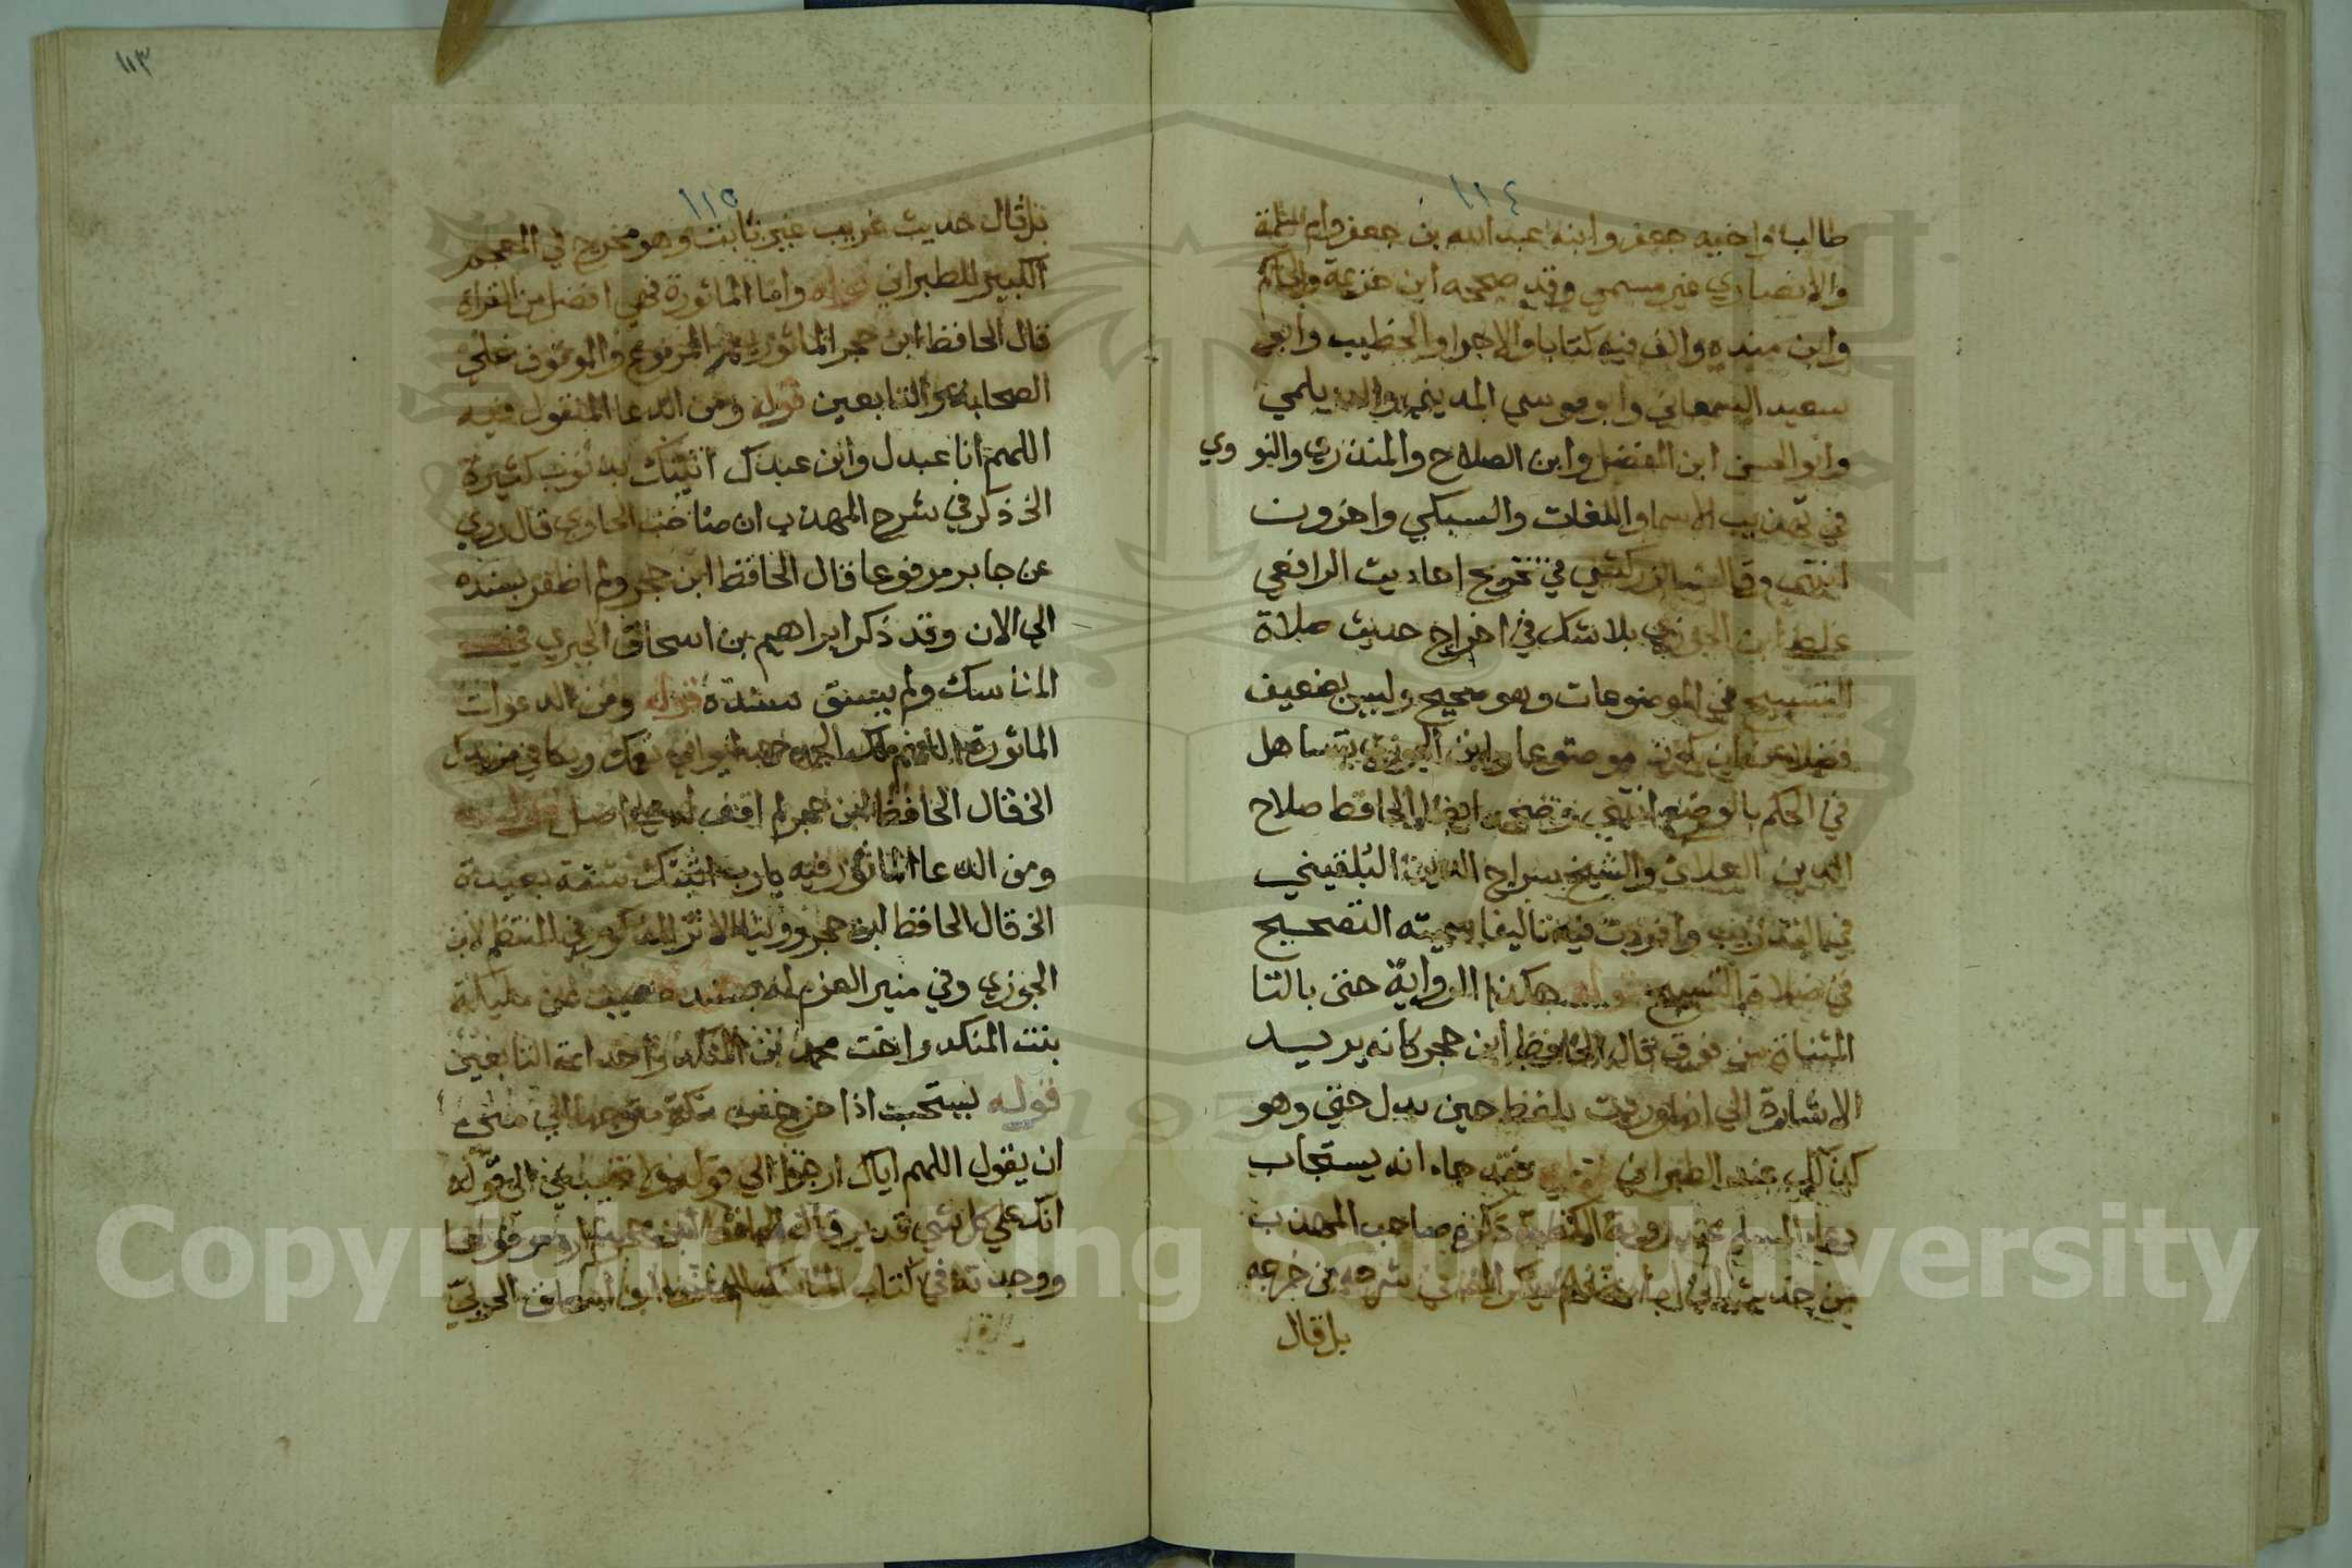 ١١٤
طالب واخيه جعفر وابنه عبد الله بن جعفر وام سلمة
والانصاري غير مسمى وقد صححه ابن خزيمة والحاكم
وابن منده والف فيه كتابا والاجرى والخطيب وابو
سعيد السمعاني وابو موسي المديني والديلمي
وابو الحسن ابن المفضل وابن الصلاح والمنذري والنووي
في تهذيب الاسما واللغات والسبكي واخرون
انتهي وقال الزركشي في تخريج احاديث الرافعي
غلط ابن الجوزي بلا شك في اخراج حديث صلاة
التسبيح في الموضوعات وهو صحيح وليس بضعيف
فضلا عن ان يكون موضوعا وابن الجوزي يتساهل
في الحكم بالوضع انتهي وصححه ايضا الحافظ صلاح
الدين العلائ والشيخ سراج الدين البلقيني
وافردت فيه تاليفا سميته التصحيح
في صلاة التسبيح قوله هكذا الرواية حتى بالتا
المثناة من فوق قال الحافظ ابن حجر كانه يريد
الاشارة الي انها وردت بلفظ حين بدل حتى وهو
كذلك عند الطبراني قوله فقد جاء انه يستجاب
دعاء المسلم عند روية الكعبة ذكره صاحب المهذب
من حديث ابي امامة ولم يذكر في شرحه من خرجه
بل قال
١١٣
١١٥
بل قال حديث غريب غير ثابت وهو مخرج في المعجم
الكبير للطبراني قوله واما الماثورة فهي افضل من القراة
قال الحافظ ابن حجر الماثورة يعم المرفوع والموقوف علي
الصحابة والتابعين قوله ومن الدعا المنقول فيه
اللهم انا عبدك وابن عبدك اتيتك بذنوب كثيرة
الخ ذكر في شرح المهذب ان صاحب الحاوي قال روي
عن جابر مرفوعا قال الحافظ ابن حجر ولم اظفر بسنده
الي الان وقد ذكر ابراهيم بن اسحاق الحربي في
المناسك ولم يسق سنده قوله ومن الدعوات
الماثورة اللهم لك الحمد حمدا يوافي نعمك ويكافي مزيدك
الخ قال الحافظ ابن حجر لم اقف له علي اصل قوله
ومن الدعا الماثور فيه يا رب اتيتك من شقة بعيدة
الخ قال الحافظ ابن حجر وروينا الاثر المذكور في المنتظم لابن
الجوزي وفي مثير العزم له بسند ضعيف عن مليكة
بنت المنكدر اخت محمد بن المنكدر احد ائمة التابعين
قوله يستحب اذا خرج من مكة متوجها الي مني
ان يقول اللهم اياك ارجو الي قوله الي قوله
انك علي كل شي قدير قال الحافظ ابن حجر لم اره مرفوعا
ووجدته في كتاب المناسك للحافظ ابي اسحاق الحربي